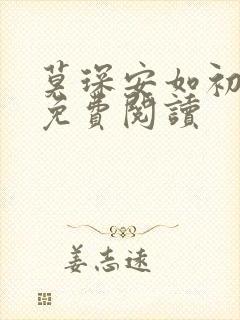 莫琛安如初
免費閱讀
姜志遠